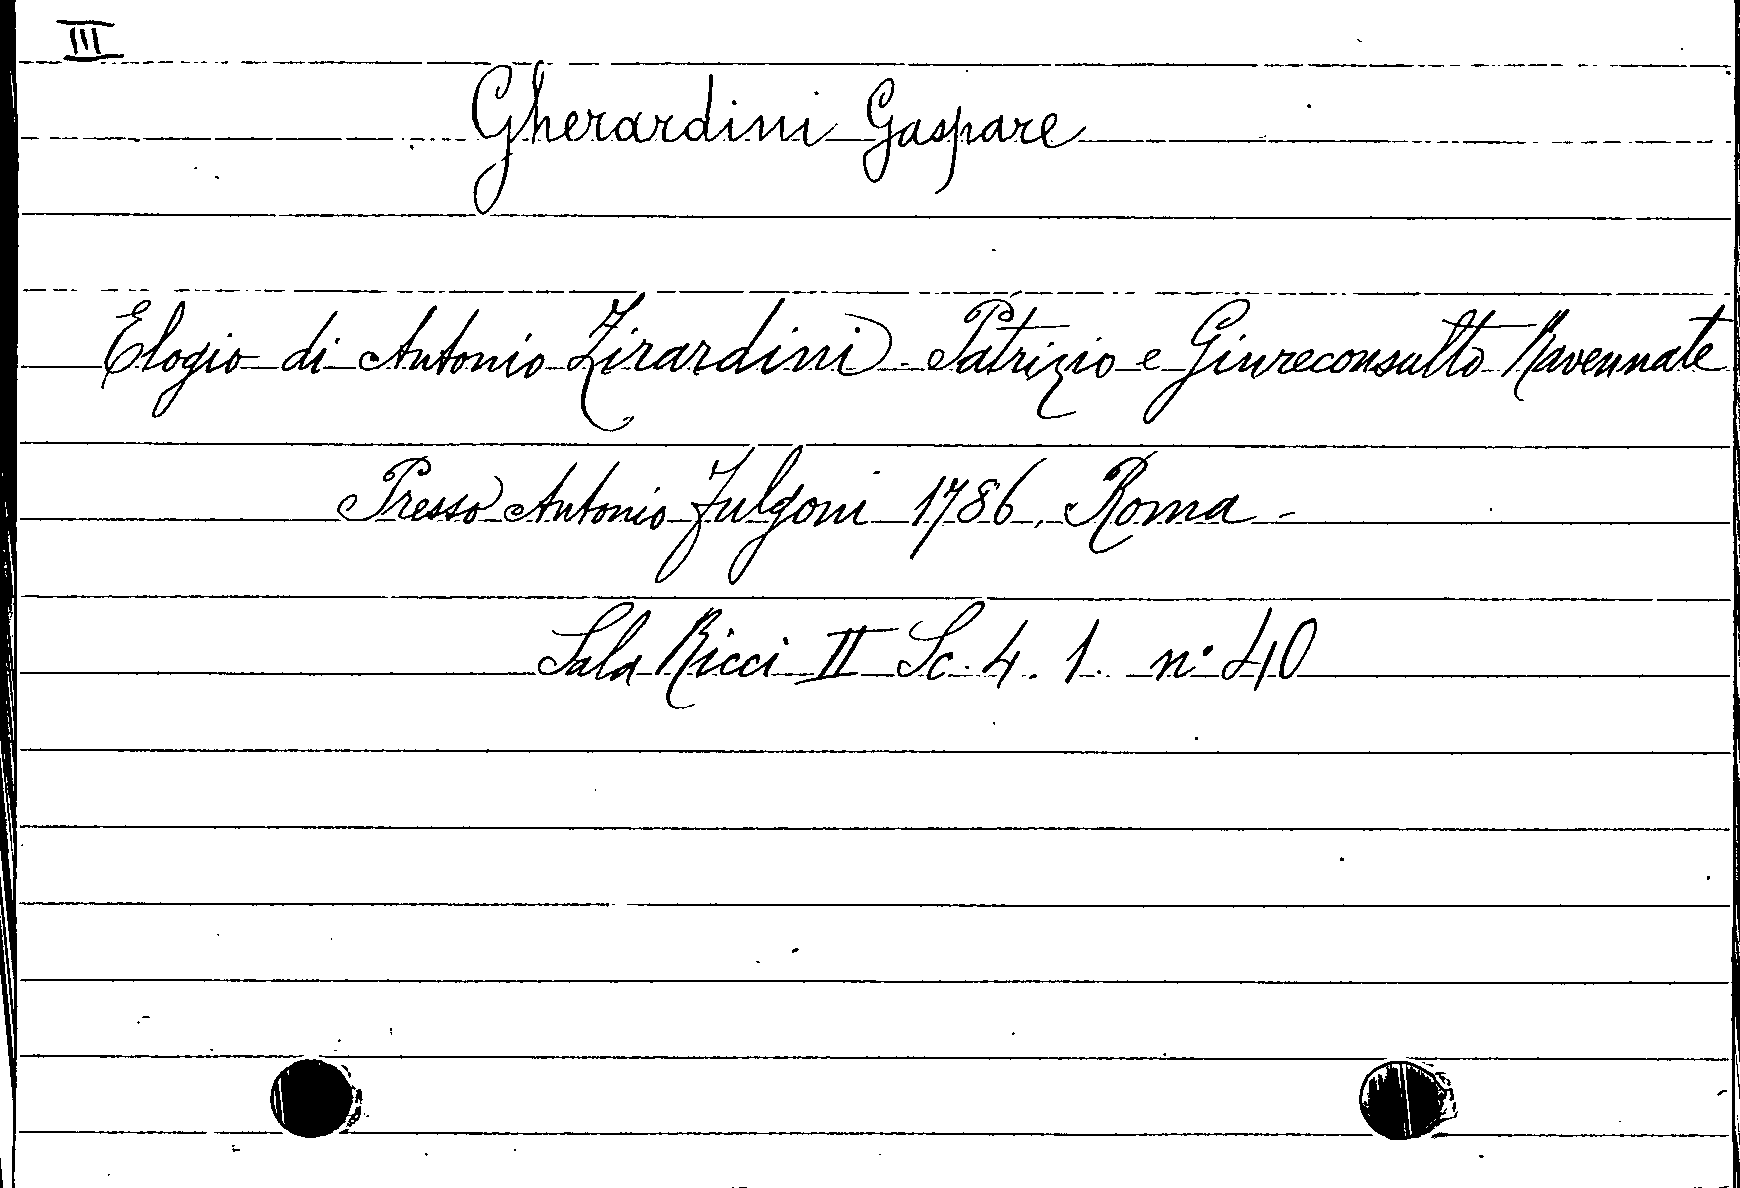 III
Gherardini Gaspare
Elogio di Antonio Zirardini Patrizio e Giureconsulto Ravennate
Presso Antonio Fulgoni 1786, Roma -
Sala Ricci II Sc. 4. 1. n° 40